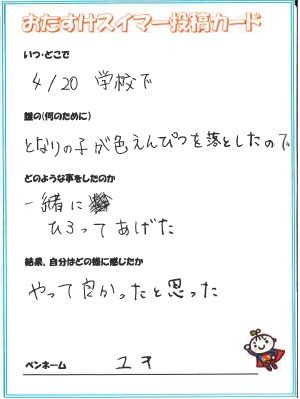 おたすけスイマー投稿カード
いつ・どこで
4/20 学校で
誰の(何のために)
となりの子が色えんぴつを落としたので
どのような事をしたのか
一緒に
ひろってあげた
結果、自分はどの様に感じたか
やって良かったと思った
ペンネーム ユキ